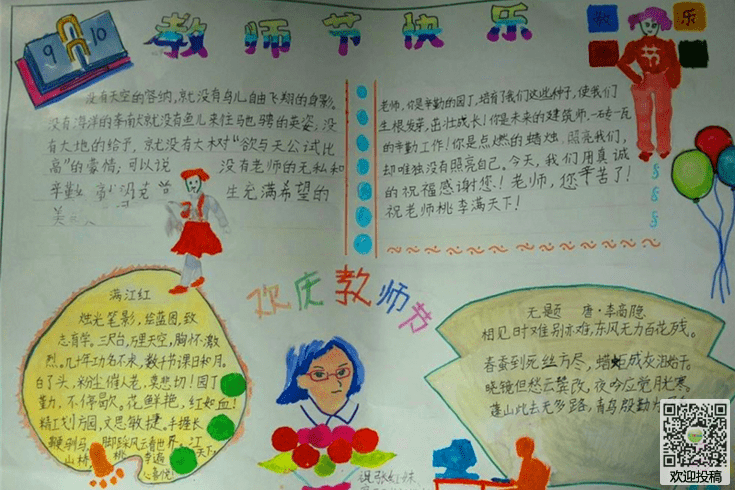 教师节快乐
9 10
教 乐
节
没有天空的容纳,就没有鸟儿自由飞翔的身影。
没有海洋的奉献就没有鱼儿来往驰骋的英姿,没
有大地的给予,就没有大木对“欲与天公试比
高”的豪情;可以说 没有老师的无私和
辛勤 就没 生充满希望的
美
老师,你是辛勤的园丁,培育了我们这些种子,使我们
生根发芽,茁壮成长!你是未来的建筑师,一砖一瓦
的辛勤工作!你是点燃的蜡烛,照亮我们,
却唯独没有照亮自己。今天,我们用真诚
的祝福感谢您!老师,您辛苦了!
祝老师桃李满天下!
欢庆教师节
满江红
烛光笔影,绘蓝图,致
志育学。三尺台,万里天空,胸怀激
烈。几十年功名不求,数千节课日和月。
白了头,粉尘催人老,莫悲切!园丁
勤,不停歇。花鲜艳,红如血!
精工划方圆,文思敏捷。手握长
鞭
山 桃李遍 天下
心喜悦
无题 唐·李商隐
相见时难别亦难,东风无力百花残。
春蚕到死丝方尽,蜡炬成灰泪始干。
晓镜但愁云鬓改,夜吟应觉月光寒。
蓬山此去无多路,青鸟殷勤为
欢迎投稿